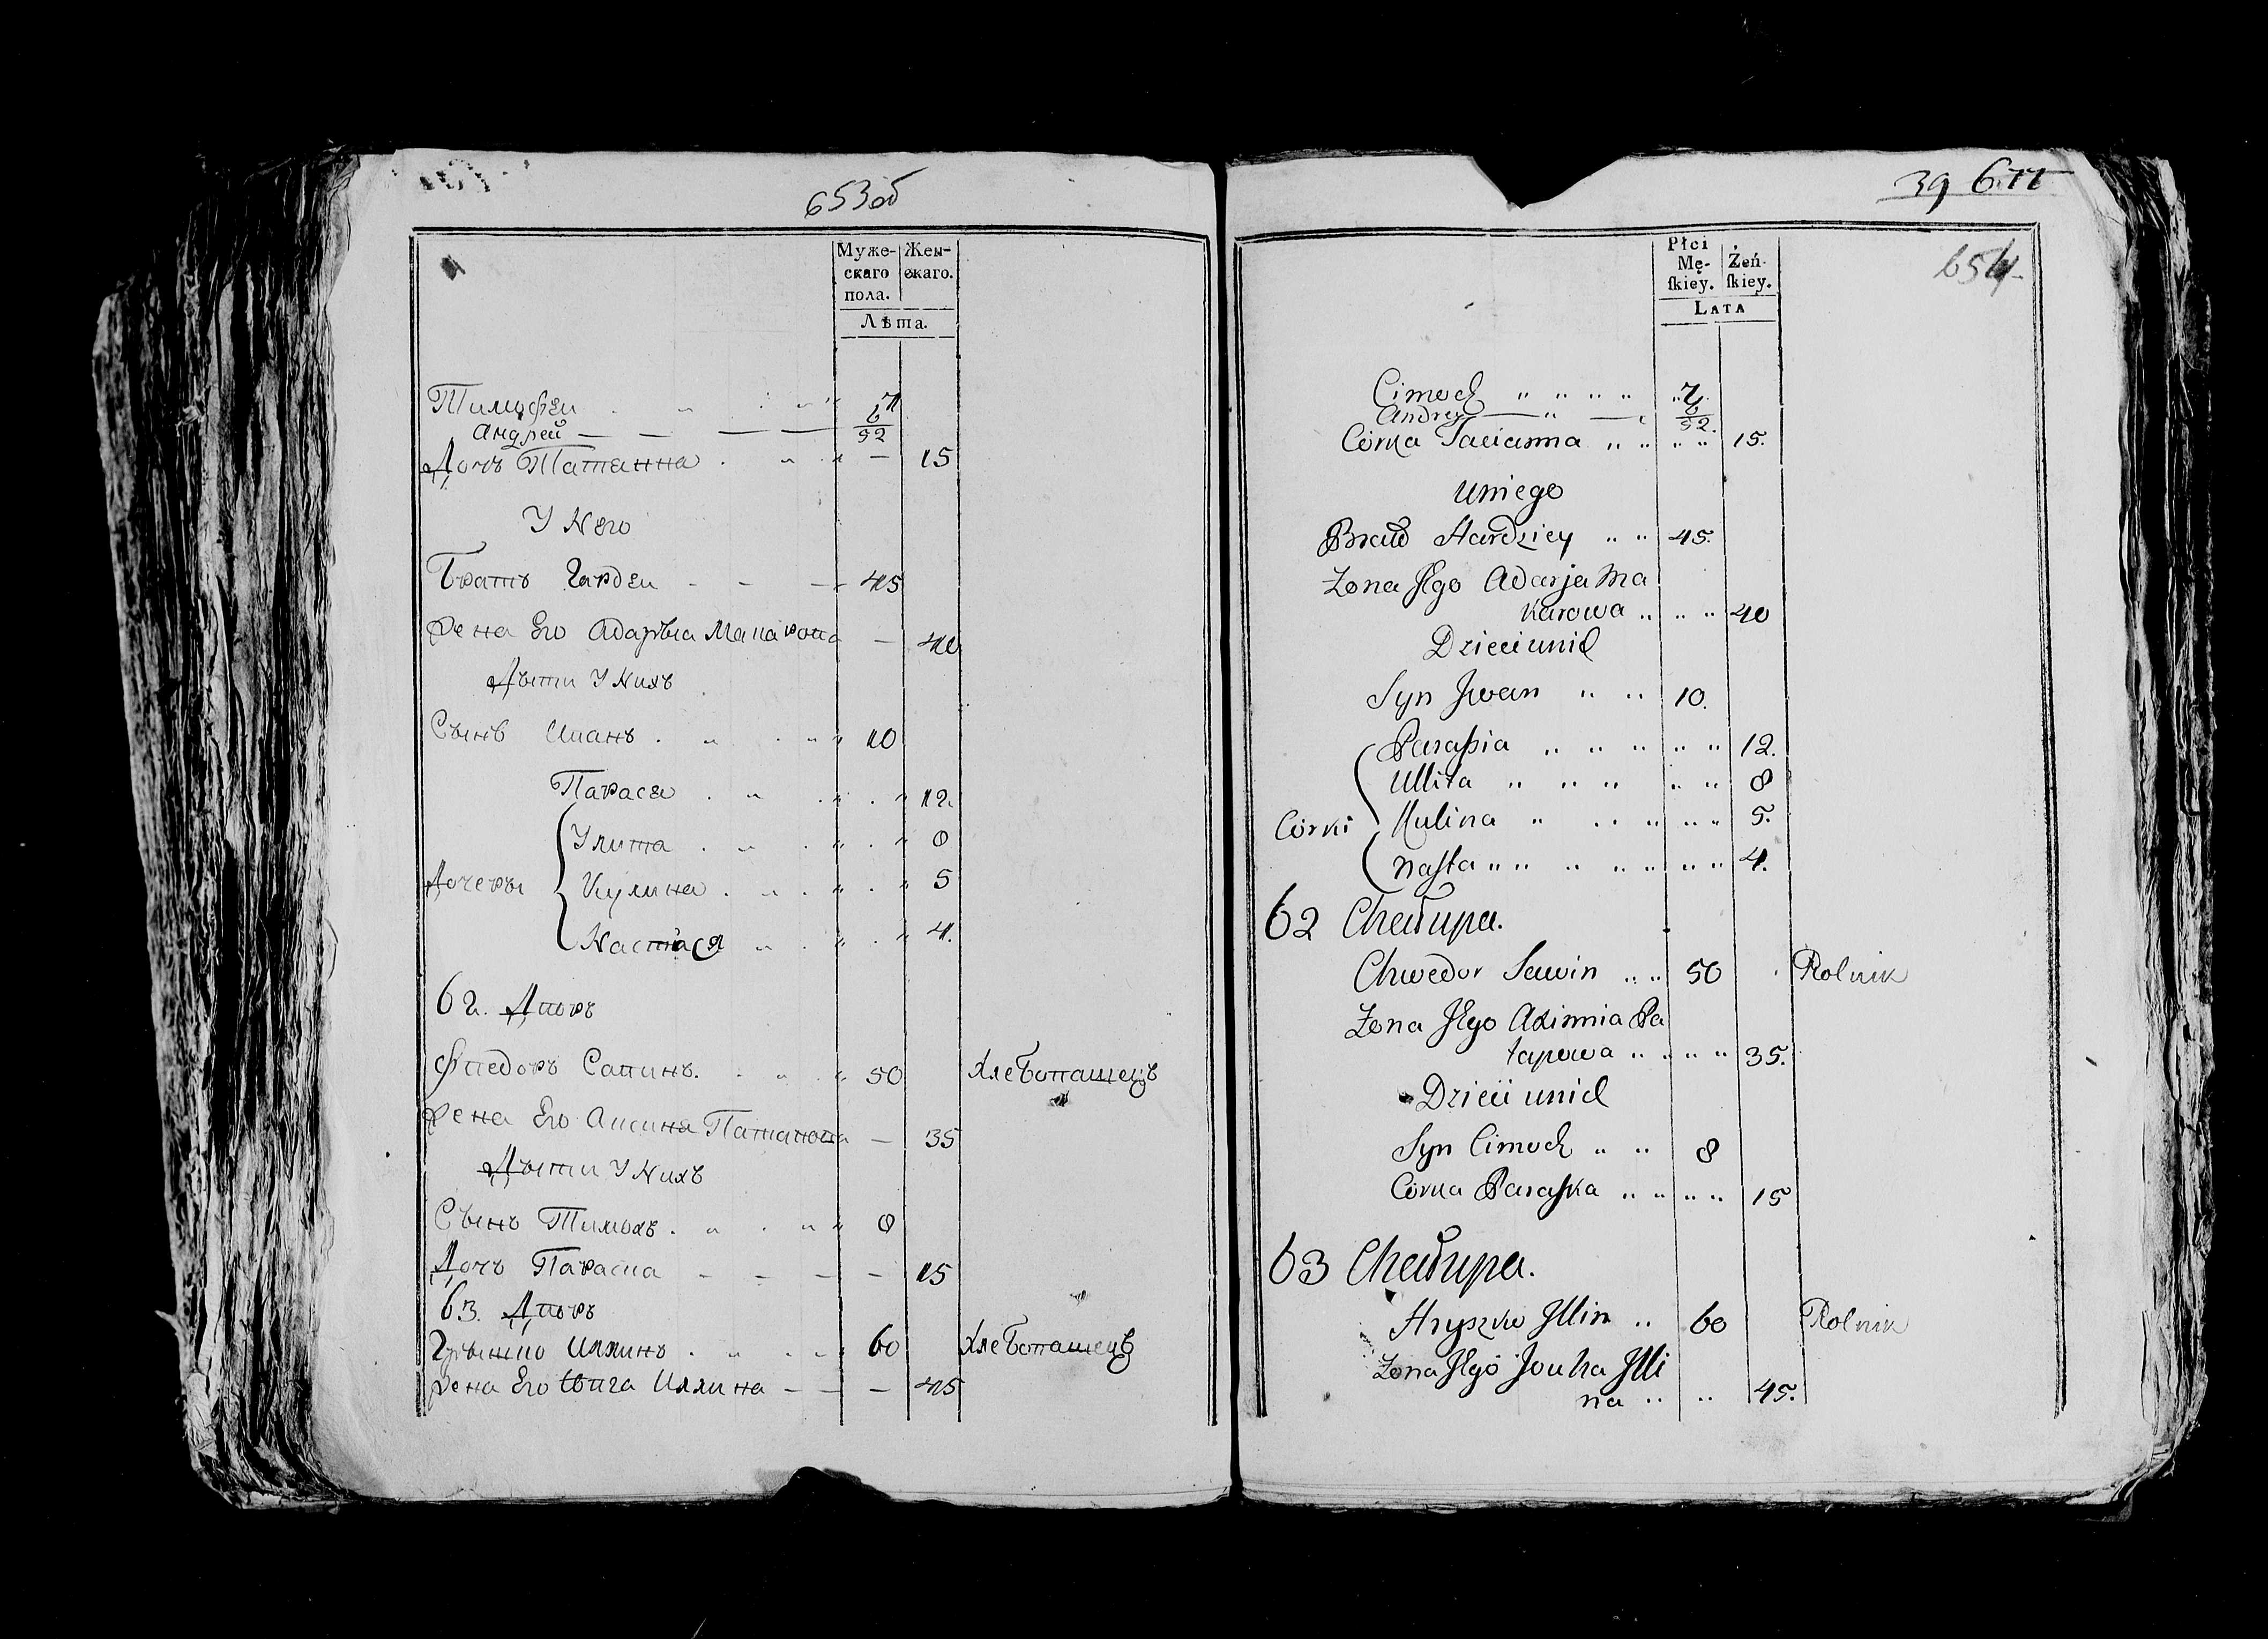 653об
Муже-
скаго
пола.
Жен-
скаго.
Лѣта.
Тимофеи 7
Андрей — — — — 6
52
Дочь Татанна . „ „ — 15
У Него
Братъ Гардеи - - — 45
Жена Его Адарыа Макарова — 40
Дѣти У Нихъ
Сынъ Иванъ . „ . „ „ 10
Парася . „ . „ . „ 12.
Дочеры
Улита . „ . „ . „ 8
Кулина . „ . „ . „ 5
Настася „ . „ . „ 4.
62. Дворъ
Фведоръ Савинъ. . „ „ 50 Хлебопашецъ
Жена Его Аксиня Патапова — 35
Дѣти У Нихъ
Сынъ Тимохъ . „ . „ „ 8
Дочь Параска - - — — 15
63. Дворъ
Грышко Иллинъ . „ . „ 60 Хлебопашецъ
Жена Его Иллина — — — 45
39 677
654
Płci
Mę-
ſkiey.
Żeń-
ſkiey.
Lata
Cimoch „ „ „ „ 7.
Andrey — „ — 6
52.
Córka Tacianna „ „ „ „ 15.
Uniego
Brat Hardziey „ „ 45.
Zona Jego Adarja Ma
karowa „ „ „ 40
Dzieci unich
Syn Jwan „ „ 10.
Paraſsia „ „ „ „ „ 12.
Ullita „ „ „ „ „ 8
Córki Kulina „ „ „ „ „ 5.
Naſta „ „ „ „ „ „ „ 4.
62 Chatupa.
Chwedor Sawin „ „ 50 Rolnik
Zona Jego Axinnia Pa
tapowa „ „ „ 35.
Dzieci unich
Syn Cimoch „ „ 8
Córka Paraſka „ „ „ „ 15
63 Chatupa.
Hryszko Jllin „ 60 Rolnik
Zona Jego Jouha Jlli
na „ „ 45.